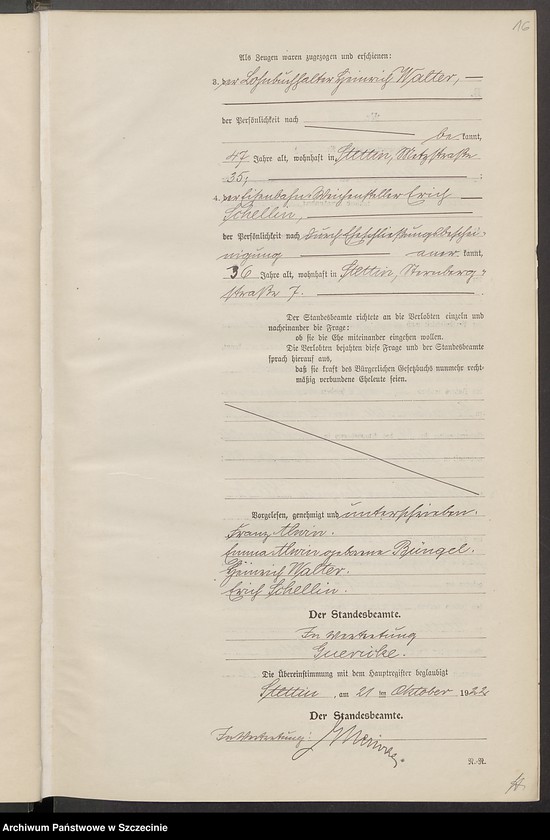 16
Als Zeugen waren zugezogen und erschienen:
3. der Lohnbuchhalter Heinrich Walter,
der Persönlichkeit nach
be kannt,
47 Jahre alt, wohnhaft in Stettin, Metzstraße
35;
4. der Eisenbahn-Weichensteller Erich
Schellin,
der Persönlichkeit nach durch Eheschließungsbeschei-
nigung aner kannt,
36 Jahre alt, wohnhaft in Stettin, Sternberg-
straße 7.
Der Standesbeamte richtete an die Verlobten einzeln und
nacheinander die Frage:
ob sie die Ehe miteinander eingehen wollen.
Die Verlobten bejahten diese Frage und der Standesbeamte
sprach hierauf aus,
daß sie kraft des Bürgerlichen Gesetzbuchs nunmehr recht-
mäßig verbundene Eheleute seien.
Vorgelesen, genehmigt und unterschrieben.
Franz Alwin.
Emma Alwin geborene Büngel.
Heinrich Walter.
Erich Schellin.
Der Standesbeamte.
In Vertretung
Guericke.
Die Übereinstimmung mit dem Hauptregister beglaubigt
Stettin, am 21 ten Oktober 1922
Der Standesbeamte.
In Vertretung:
R.-R.
Archiwum Państwowe w Szczecinie